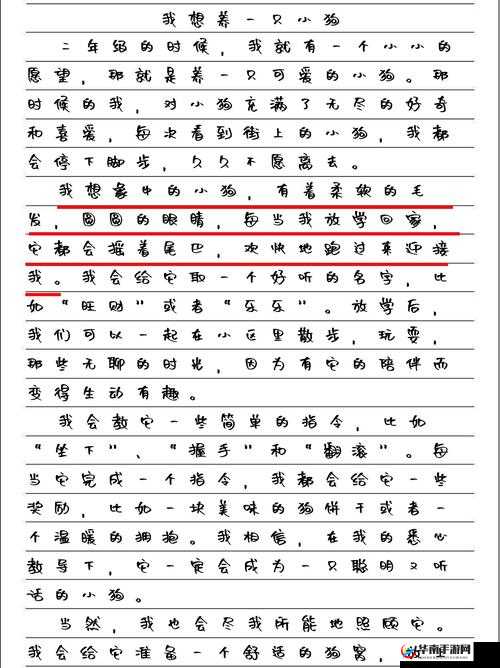 我想养一只小狗
二年级的时候，我就有一个小小的
愿望，那就是养一只可爱的小狗。那
时候的我，对小狗充满了无尽的好奇
和喜爱，每次看到街上的小狗，我都
会停下脚步，久久不愿离去。
我想象中的小狗，有着柔软的毛
发，圆圆的眼睛，每当我放学回家，
它都会摇着尾巴，欢快地跑过来迎接
我。我会给它取一个好听的名字，比
如“旺财”或者“乐乐”。放学后，
我们可以一起在小区里散步，玩耍，
那些无聊的时光，因为有它的陪伴而
变得生动有趣。
我会教它一些简单的指令，比如
“坐下”、“握手”和“翻滚”。每
当它完成一个指令，我都会给它一些
奖励，比如一块美味的狗饼干或者一
个温暖的拥抱。我相信，在我的悉心
教导下，它一定会成为一只聪明又听
话的小狗。
当然，我也会尽我所能地照顾它。
我会给它准备一个舒适的狗窝，
华南手游网